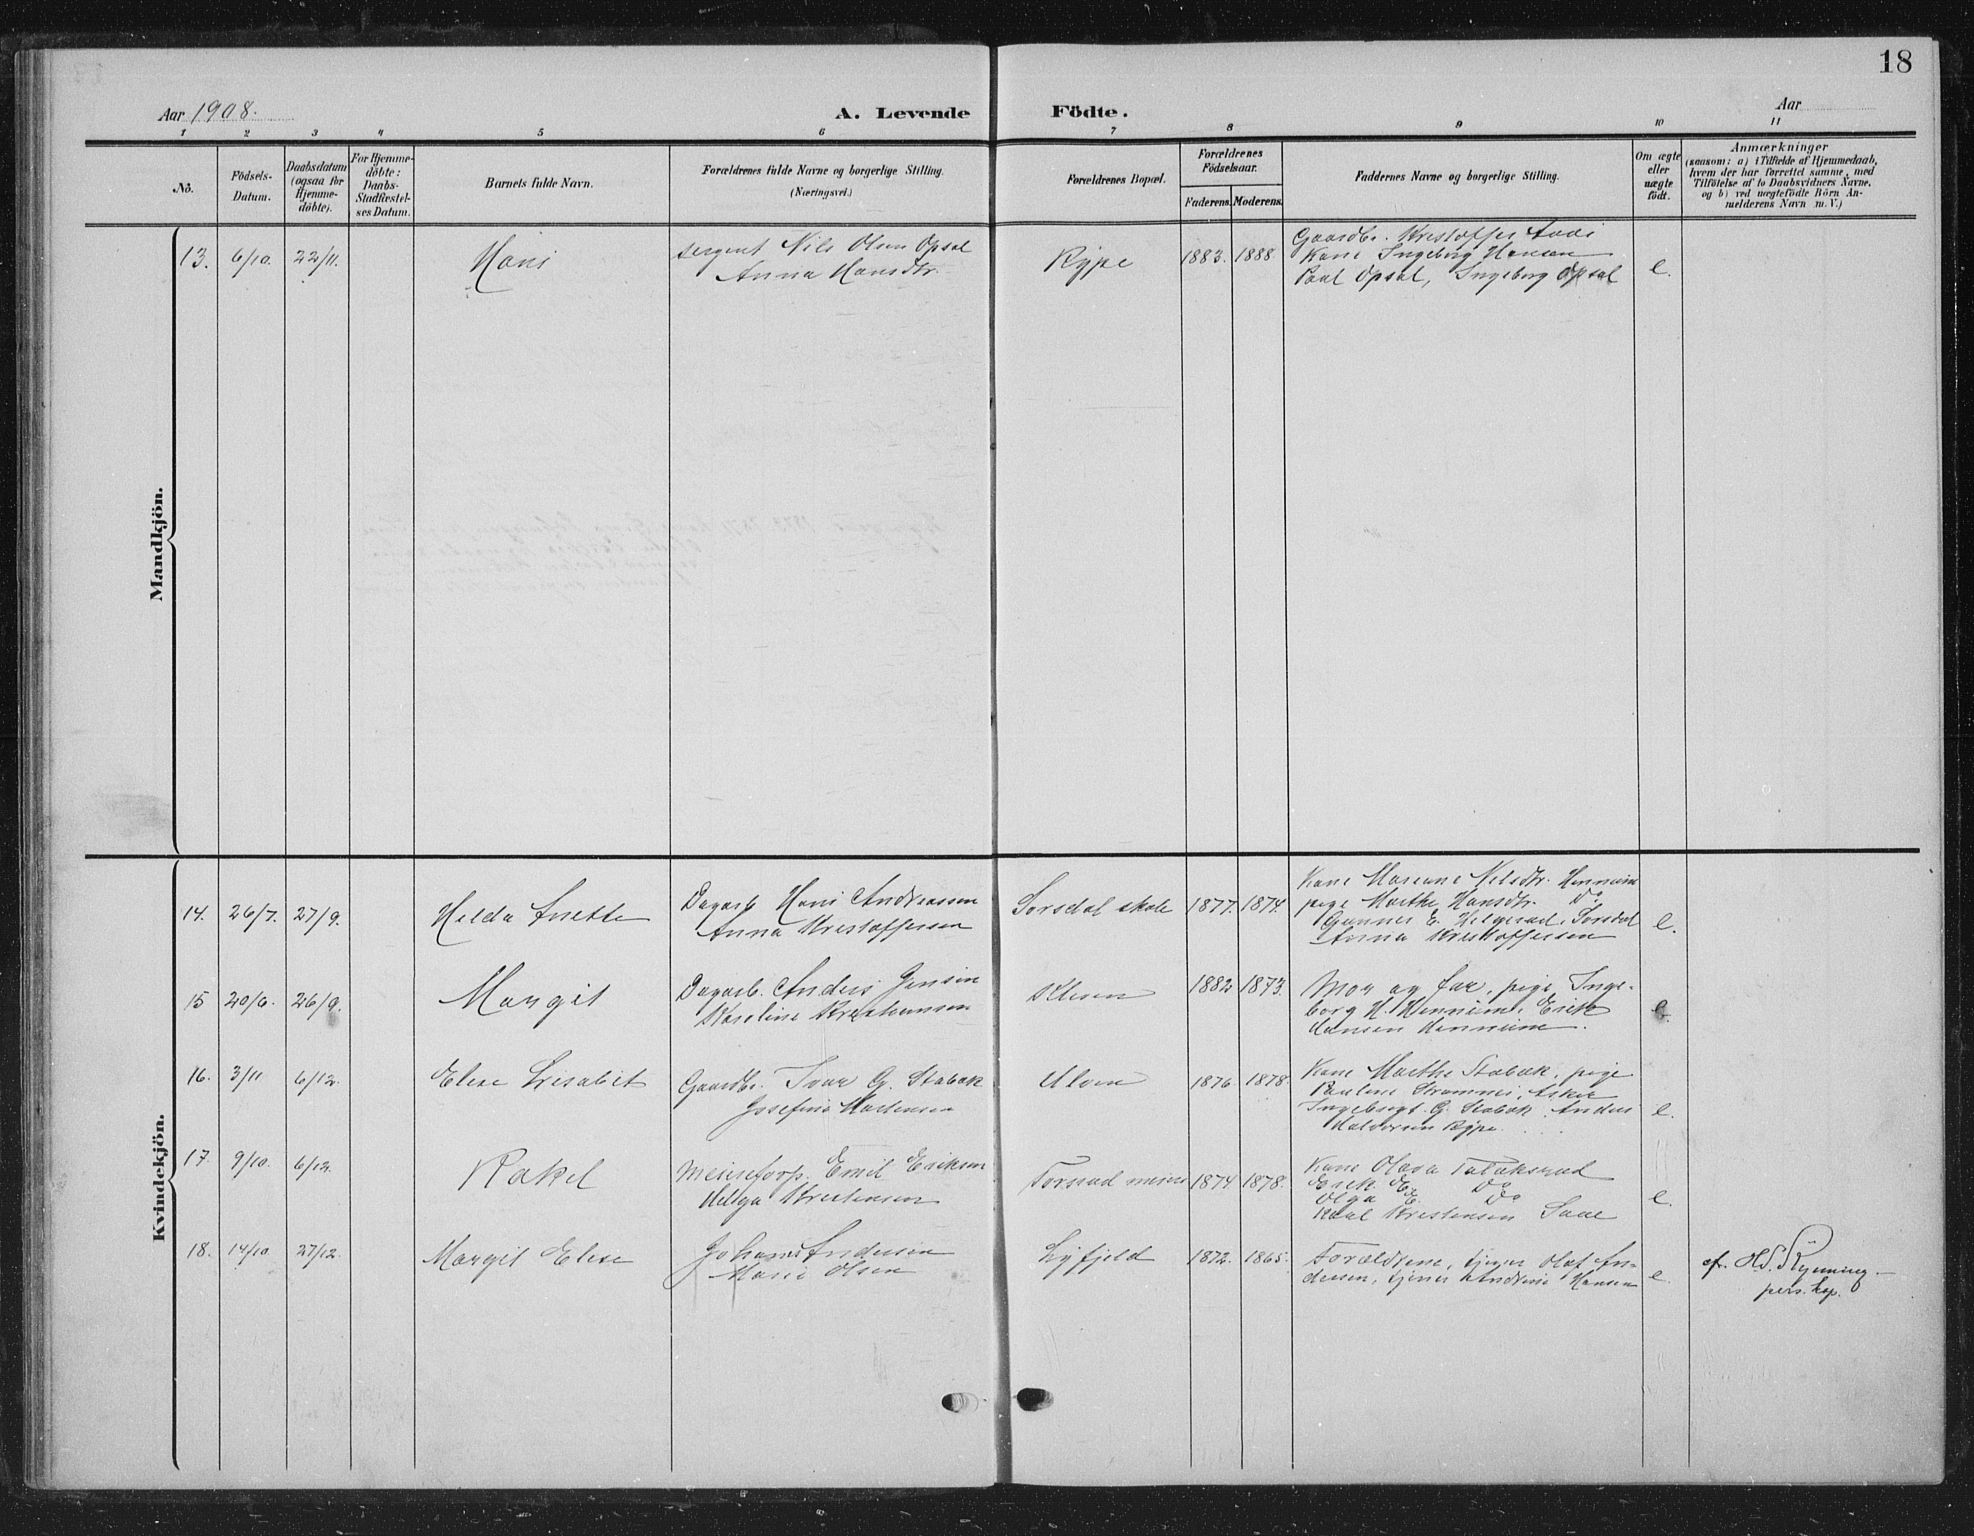 18
Aar 1908.
A. Levende Födte.
Aar
1 2 3 4 5 6 7 8 9 10 11
No.
Födsels-
Datum.
Daabsdatum
(ogsaa for
Hjemme-
döbte).
For Hjemme-
döbte:
Daabs-
Stadfæstel-
ses Datum.
Barnets fulde Navn.
Forældrenes fulde Navne og borgerlige Stilling.
(Næringsvei.)
Forældrenes Bopæl.
Forældrenes
Födselsaar.
Faderens. Moderens.
Faddernes Navne og borgerlige Stilling.
Om ægte
eller
uægte
födt.
Anmærkninger
(saasom: a) i Tilfælde af Hjemmedaab,
hvem der har forrettet samme, med
Tilföielse af to Daabsvidners Navne,
og b) ved uægtefödte Börn An-
melderens Navn m. V.)
Mandkjön.
13. 6/10. 22/11. Hans
Sergent Nils Olsen Opsal
Anna Hansdtr.
Rype 1883. 1888
Gaardbr. Kristoffer
Kone Ingeborg Hansen
Paul Opsal, Ingeborg Opsal
e.
Kvindekjön.
14. 26/7. 27/9. Helda Anette
Dagarb. Hans Andreassen
Anna Kristoffersen
Sorsdal skole 1877. 1874.
Kone Mariane Nilsdtr. Hennum
pige Marthe Hansdtr. Do
Gunner E. Helgerud, Sorsdal
Anna Kristoffersen
e.
15 20/6. 26/9. Margit
Dagarb. Anders Jensen
Karoline Kristiansen
1882 1873.
Mor og far, pige Inge-
borg H. Hennum, Erik
Hansen Hennum.
e.
16. 3/11 6/12. Elise Lisabet
Gaardbr. Ivar G. Stabæk
Josefine Martensen
Ulven 1876 1878.
Kone Marthe Stabæk, pige
Pauline Asker
Ingebrigt G. Stabæk, Anders
Halvorsen Rype.
e.
17. 9/10. 6/12. Rakel
Emil Eriksen
Helga Kristensen
1874. 1878.
Kone Olava
Erik E. Do
Olga E. Do
Karl Kristensen
e.
18. 14/10. 27/12. Margit Elise
Johans Andersen
Marie Olsen
Lyfjeld 1872. 1865.
Forældrene, tjener Olaf An-
dersen, tjener Andrine Hansen
e.
af. H.S. Rynning
pers. kap.